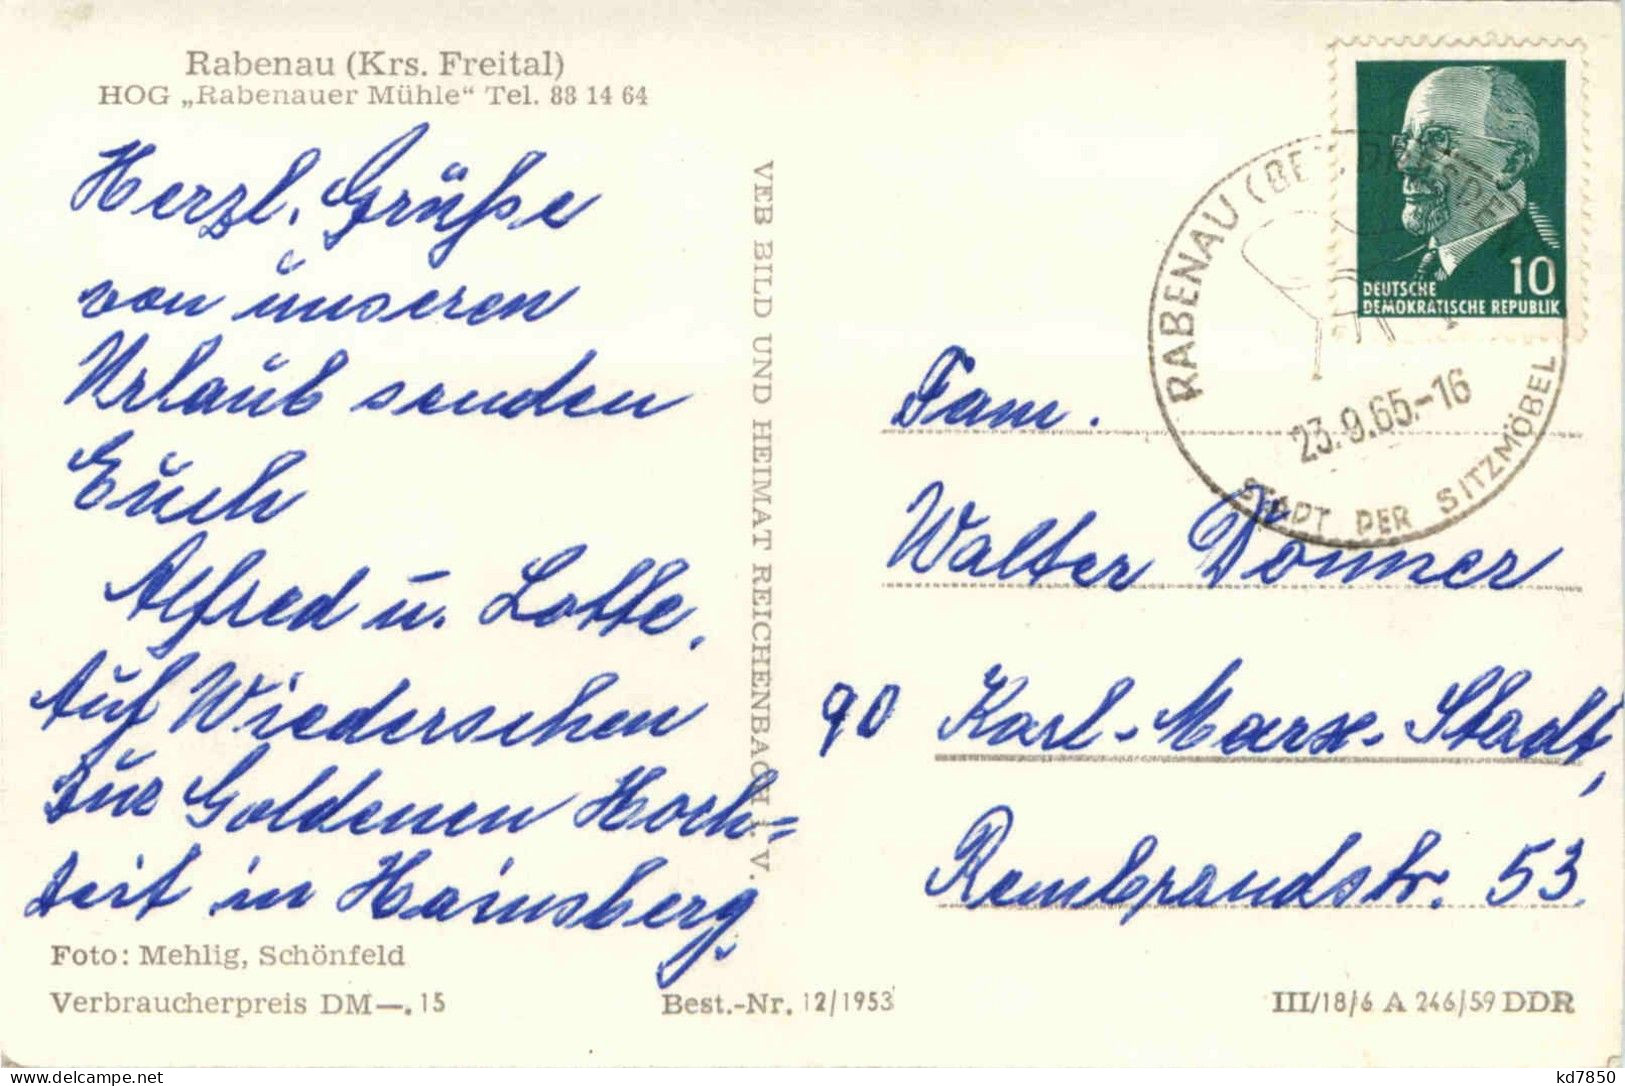 Rabenau (Krs. Freital)
HOG „Rabenauer Mühle“ Tel. 88 14 64
Herzl. Grüße
von unseren
Urlaub senden
Euch
Alfred u. Lotte.
Auf Wiedersehen
zur Goldenen Hoch=
zeit in Hainsberg.
Foto: Mehlig, Schönfeld
Verbraucherpreis DM—.15
VEB BILD UND HEIMAT REICHENBACH i. V.
Best.-Nr. 12/1953
10
DEUTSCHE
DEMOKRATISCHE REPUBLIK
RABENAU (BEZ. DRESDEN)
23.9.65.-16
STADT DER SITZMÖBEL
Fam.
Walter Donner
90 Karl-Marx-Stadt,
Rembrandstr. 53.
III/18/6 A 246/59 DDR
delcampe.net
kd7850